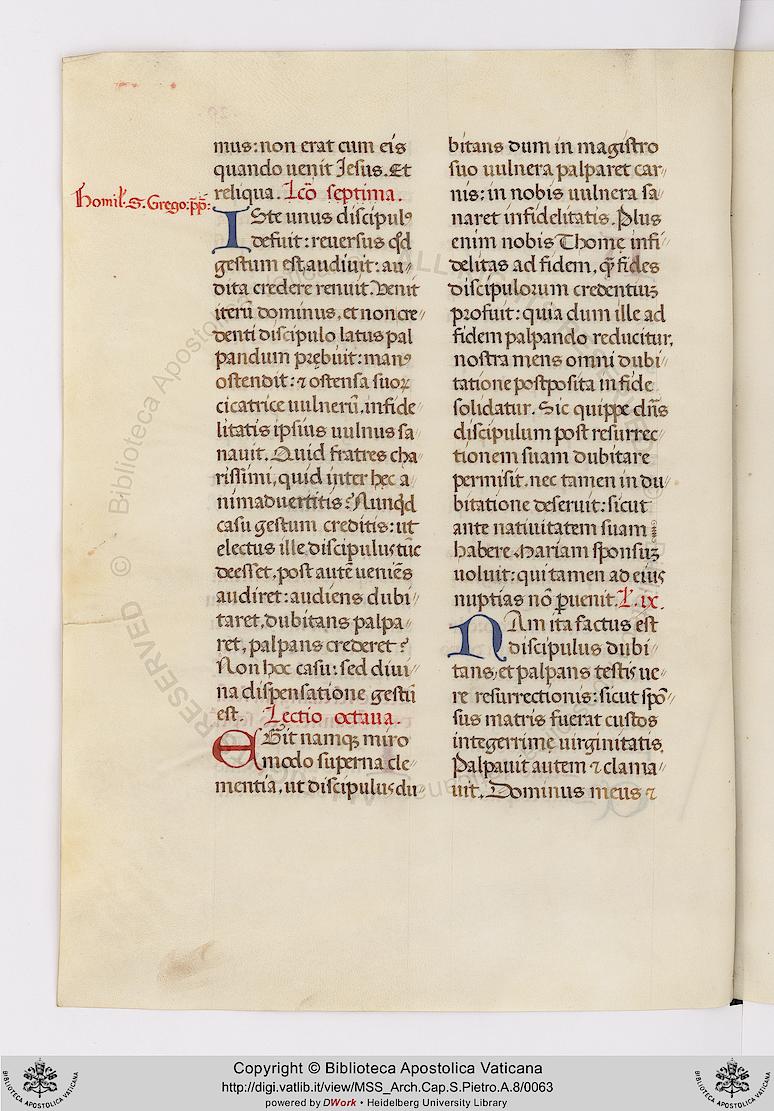 mus: non erat cum eis
quando uenit Jesus. Et
reliqua. Lcõ septima.
Homil. S. Grego. pp̃:
ISte unus discipulꝰ
defuit: reuersus qd̃
gestum est, audiuit: au〃
dita credere renuit. Venit
iterũ dominus, et non cre〃
denti discipulo latus pal
pandum prębuit: manꝰ
ostendit: ⁊ ostensa suoꝝ
cicatrice uulnerũ, infide〃
litatis ipsius uulnus sa〃
nauit. Quid fratres cha〃
rissimi, quid inter hęc a〃
nimaduertitis? Nunqd
casu gestum creditis: ut
electus ille discipulus tũc
deesset, post autẽ ueniẽs
audiret: audiens dubi〃
taret, dubitans palpa〃
ret, palpans crederet?
Non hoc casu: sed diui〃
na dispensatione gestũ
est. Lectio octaua.
EGit namqꝫ miro
modo superna cle〃
mentia, ut discipulus du〃
bitans dum in magistro
suo uulnera palparet car〃
nis: in nobis uulnera sa〃
naret infidelitatis. Plus
enim nobis Thomę infi〃
delitas ad fidem, q̃ fides
discipulorum credentiuꝫ
profuit: quia dum ille ad
fidem palpando reducitur,
nostra mens omni dubi〃
tatione postposita in fide
solidatur. Sic quippe dñs
discipulum post resurrec〃
tionem suam dubitare
permisit, nec tamen in du〃
bitatione deseruit: sicut
ante natiuitatem suam
habere Mariam sponsuꝫ
uoluit: qui tamen ad eius
nuptias nõ ꝑuenit. L. ix.
NAm ita factus est
discipulus dubi〃
tans, et palpans testis ue〃
re resurrectionis: sicut spõ〃
sus matris fuerat custos
integerrimę uirginitatis.
Palpauit autem ⁊ clama〃
uit. Dominus meus ⁊
© Biblioteca Apostolica Vaticana
ALL RIGHTS RESERVED
Copyright © Biblioteca Apostolica Vaticana
http://digi.vatlib.it/view/MSS_Arch.Cap.S.Pietro.A.8/0063
powered by DWork • Heidelberg University Library
BIBLIOTECA APOSTOLICA VATICANA
BIBLIOTECA APOSTOLICA VATICANA